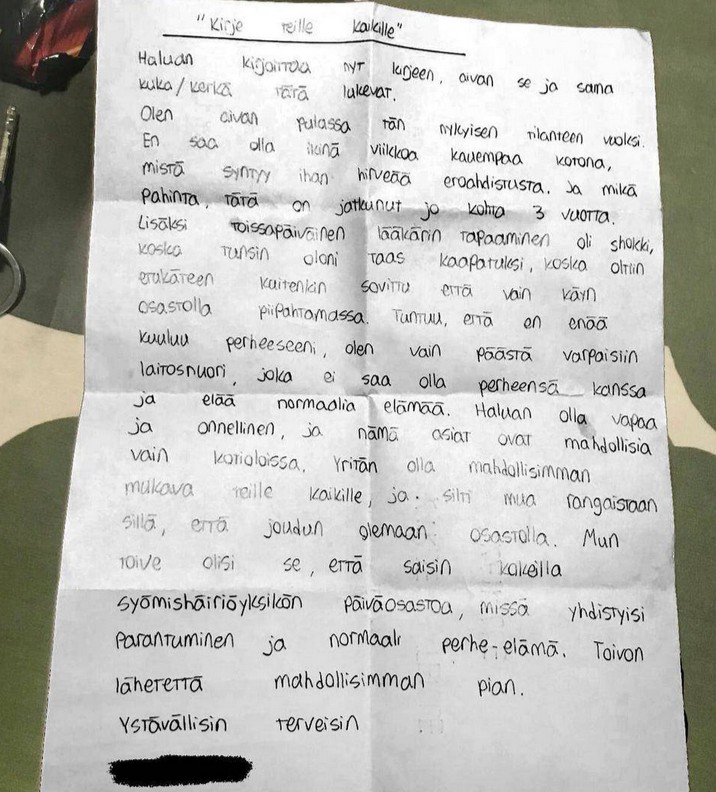 "Kirje teille kaikille"
Haluan kirjoittaa nyt kirjeen, aivan se ja sama
kuka/ketkä tätä lukevat.
Olen aivan pulassa tän nykyisen tilanteen vuoksi.
En saa olla ikinä viikkoa kauempaa kotona,
mistä syntyy ihan hirveää eroahdistusta. Ja mikä
pahinta, tätä on jatkunut jo kohta 3 vuotta.
Lisäksi toissapäiväinen lääkärin tapaaminen oli shokki,
koska tunsin oloni taas kaapatuksi, koska oltiin
etukäteen kuitenkin sovittu että vain käyn
osastolla piipahtamassa. Tuntuu, että en enää
kuulu perheeseeni, olen vain päästä varpaisiin
laitosnuori, joka ei saa olla perheensä kanssa
ja elää normaalia elämää. Haluan olla vapaa
ja onnellinen, ja nämä asiat ovat mahdollisia
vain kotioloissa. Yritän olla mahdollisimman
mukava teille kaikille, ja silti mua rangaistaan
sillä, että joudun olemaan osastolla. Mun
toive olisi se, että saisin kokeilla
syömishäiriöyksikön päiväosastoa, missä yhdistyisi
parantuminen ja normaali perhe-elämä. Toivon
lähetettä mahdollisimman pian.
Ystävällisin terveisin